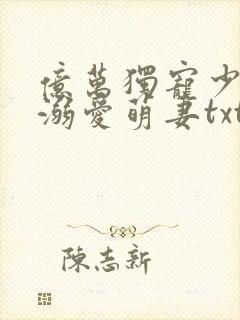 億萬獨寵少
溺愛萌妻txt
陳志新